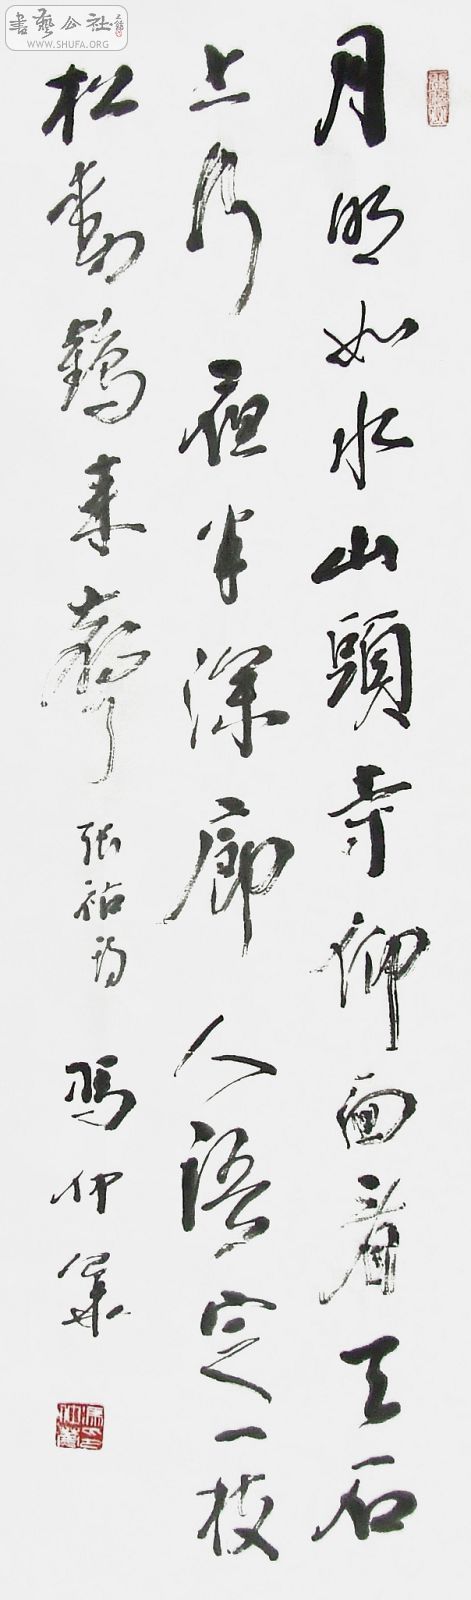 書藝公社
WWW.SHUFA.ORG
月明如水山頭寺仰面看天石
上行夜半深廊人語定一枝
松動鶴來聲 張祜詩 馮仲